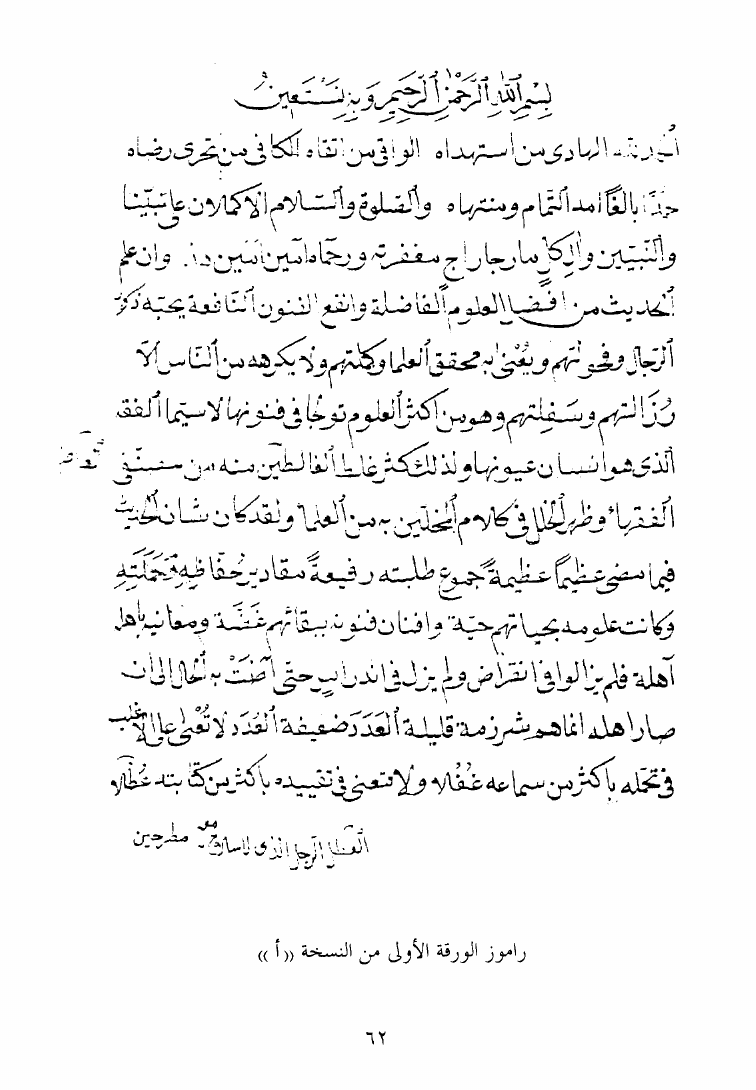 بسم الله الرحمن الرحيم وبه نستعين
الحمد لله الهادى من استهداه الواقى من اتقاه الكافى من تحرى رضاه
حمدا بالغا امد التمام ومنتهاه والصلوة والسلام الاكملان على نبينا
والنبيين وآل كل ما رجا راج مغفرته ورحماه آمين آمين وان علم
الحديث من افضل العلوم الفاضلة وانفع الفنون النافعة يحبه ذكور
الرجال وفحولتهم ويعنى به محققو العلماء وكملتهم ولا يكرهه من الناس الا
رذالتهم وسفلتهم وهو من اكثر العلوم تولجا فى فنونها لا سيما الفقه
الذى هو انسان عيونها ولذلك كثر غلط الغالطين منه من مصنفى
الفقهاء وظهر الخلل فى كلام المخلين به من العلماء ولقد كان شان الحديث
فيما مضى عظيما عظيمة جموع طلبته رفيعة مقادير حفاظه وحملته
وكانت علومه بحياتهم حية وافنان فنونه ببقائهم غضة ومغانيه باهله
آهلة فلم يزالوا فى انقراض ولم يزل فى اندراس حتى آضت به الحال الى ان
صار اهله انما هم شرذمة قليلة العدد ضعيفة العدد لا تعنى على الاغلب
فى تحمله باكثر من سماعه غفلا ولا تتعنى فى تقييده باكثر من كتابته عطلا
العطل الرجل الذى لا سلاح معه
راموز الورقة الأولى من النسخة ((أ))
٦٢